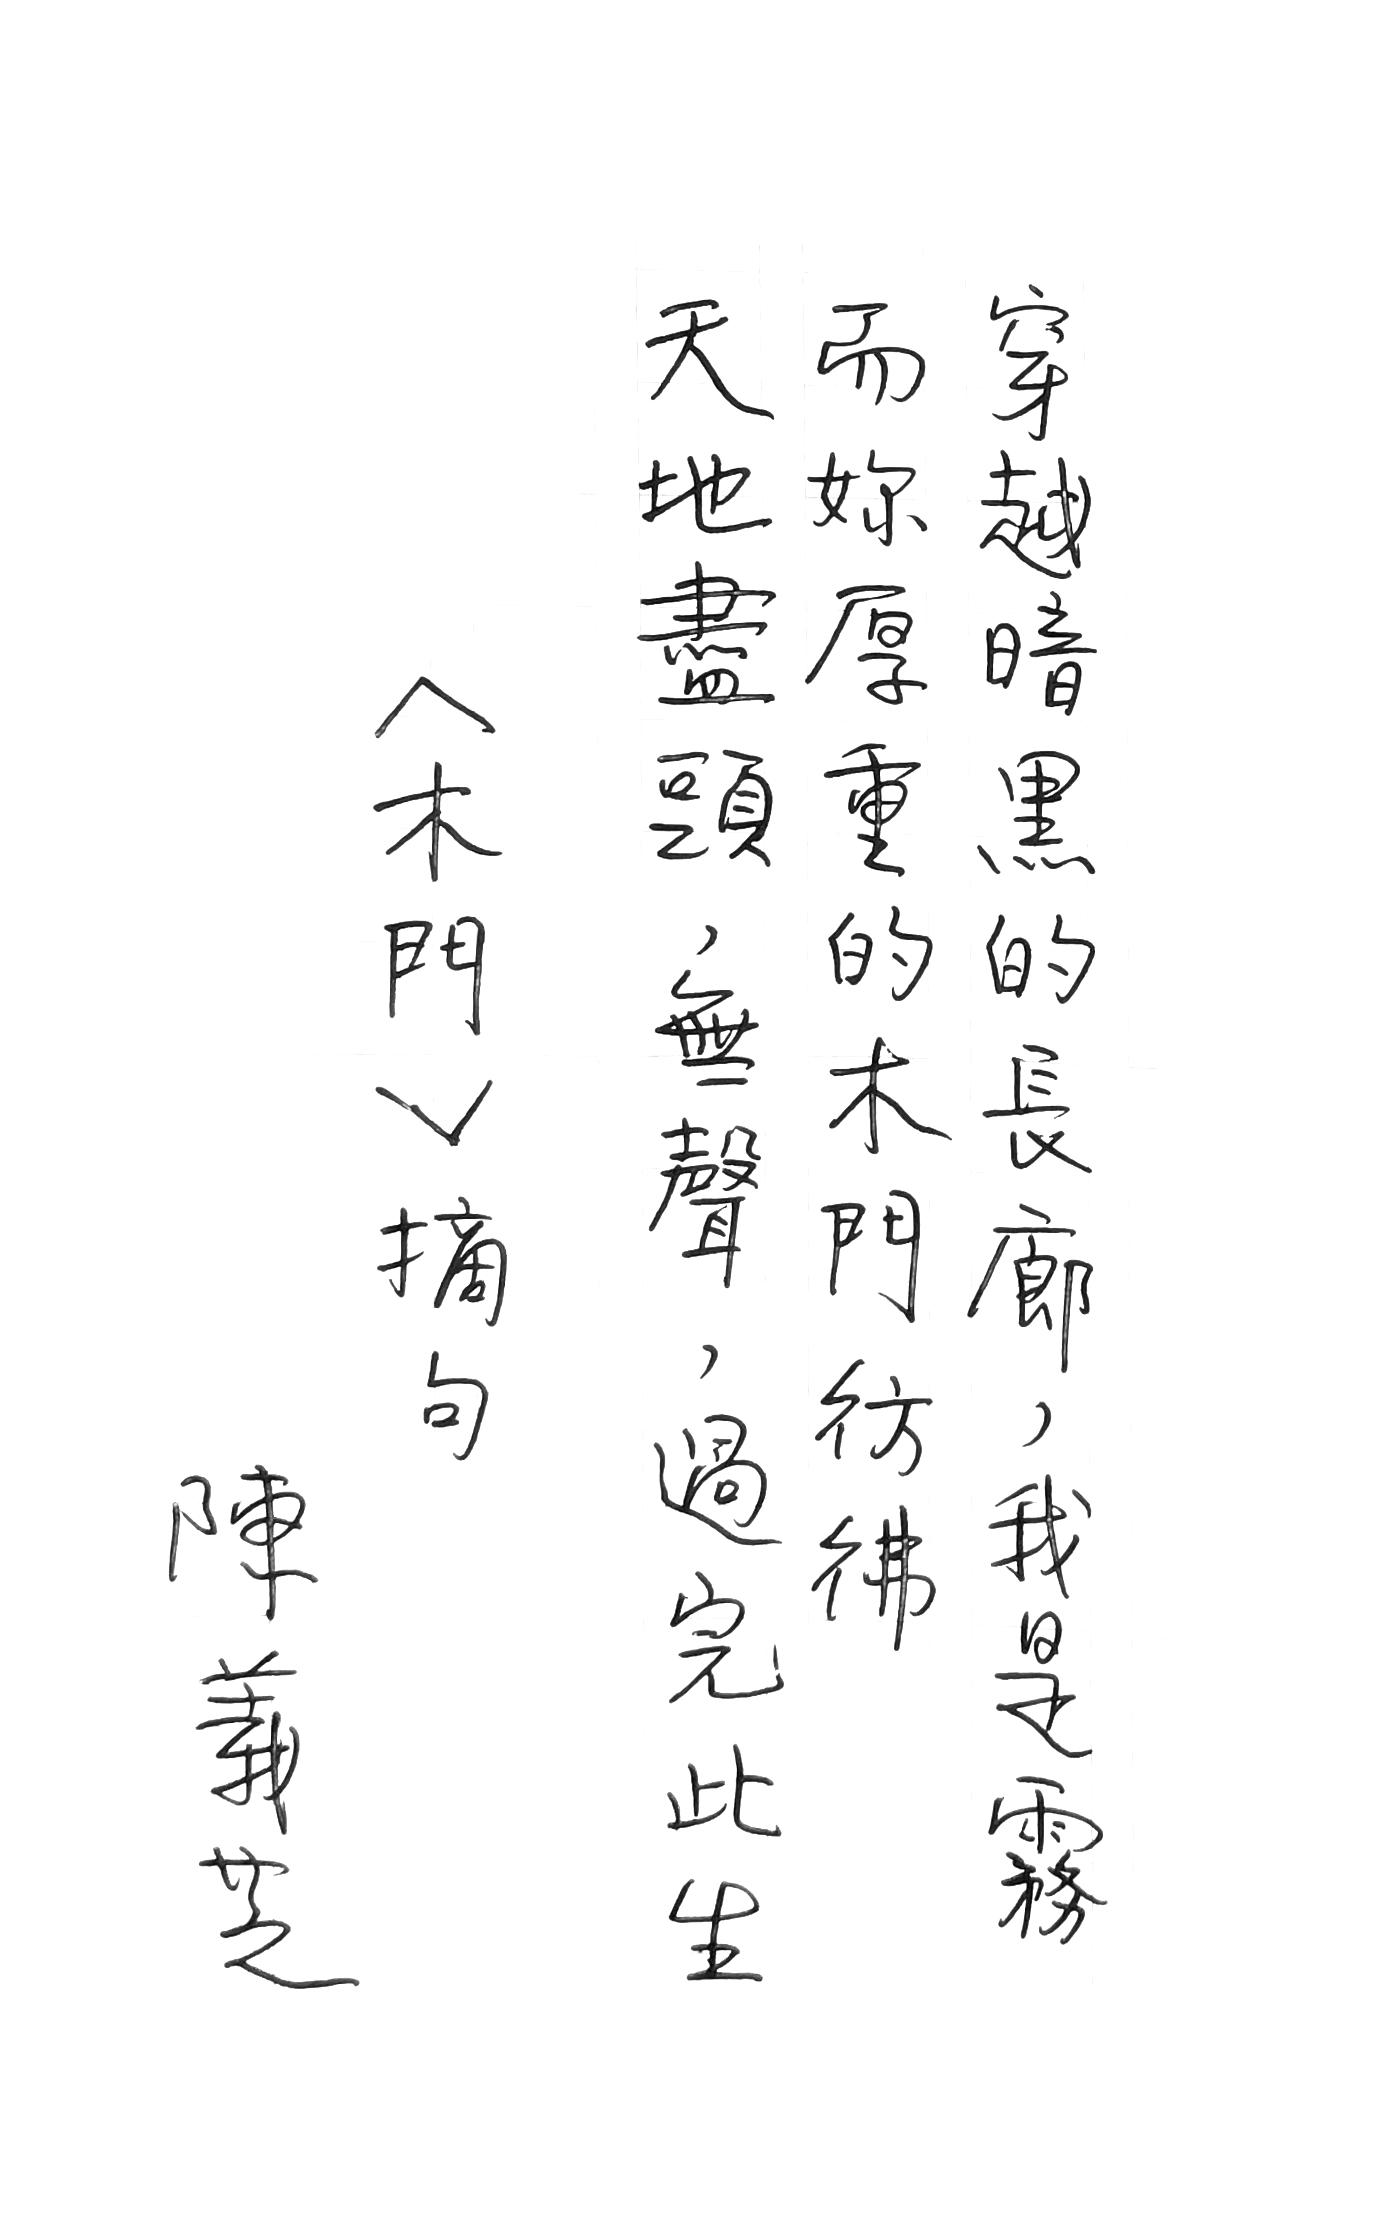 穿越暗黑的長廊，我是霧
而妳厚重的木門彷彿
天地盡頭，無聲，過完此生
〈木門〉摘句
陳義芝